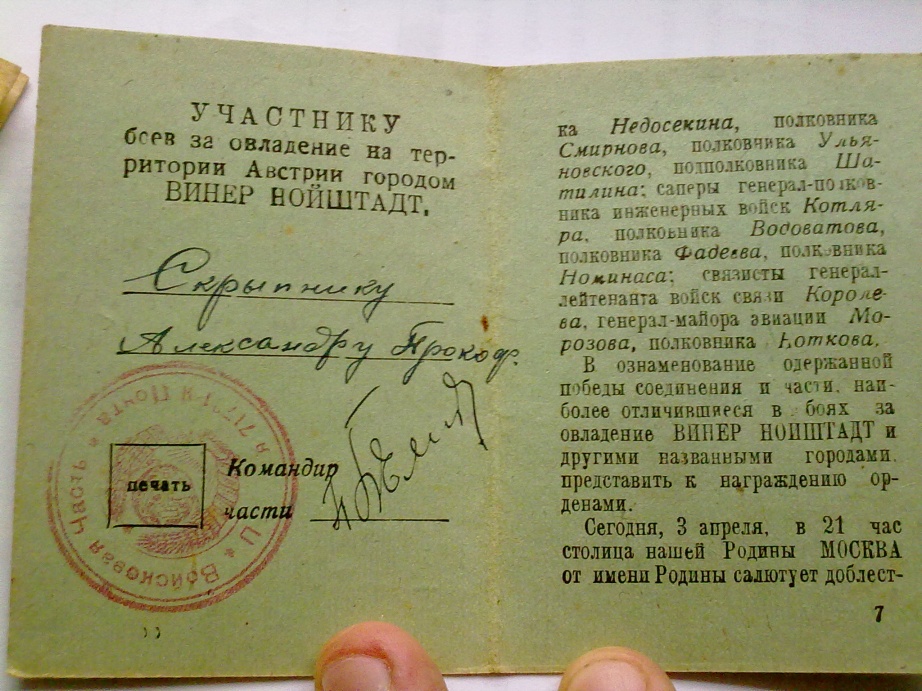 УЧАСТНИКУ
боев за овладение на тер-
ритории Австрии городом
ВИНЕР НОЙШТАДТ.
Скрыпнику
Александру Прокоф.
Войсковая часть
Почта
печать
Командир
части
ка Недосекина, полковника
Смирнова, полковника Улья-
новского, подполковника Ша-
тилина; саперы генерал-полков-
ника инженерных войск Котля-
ра, полковника Водоватова,
полковника Фадеева, полковника
Номинаса; связисты генерал-
лейтенанта войск связи Короле-
ва, генерал-майора авиации Мо-
розова, полковника Коткова.
В ознаменование одержанной
победы соединения и части, наи-
более отличившиеся в боях за
овладение ВИНЕР НОЙШТАДТ и
другими названными городами,
представить к награждению ор-
денами.
Сегодня, 3 апреля, в 21 час
столица нашей Родины МОСКВА
от имени Родины салютует доблест-
7